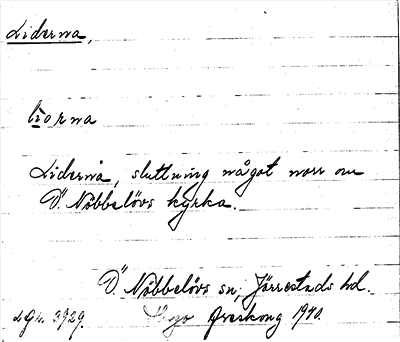 Liderna,
liorna
Liderna, sluttning något norr om
Ö. Nöbbelövs kyrka.
Ö. Nöbbelövs sn; Järrestads hd.
LGu. 3929. Hugo Areskoug 1940.